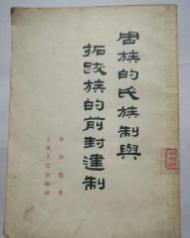 周族的氏族制與
拓跋族的前封建制
李亞農著
上海人民出版社